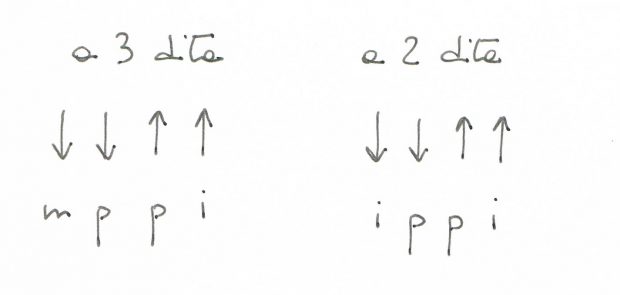 a 3 dita
a 2 dita
↓ ↓ ↑ ↑
↓ ↓ ↑ ↑
m p p i
i p p i